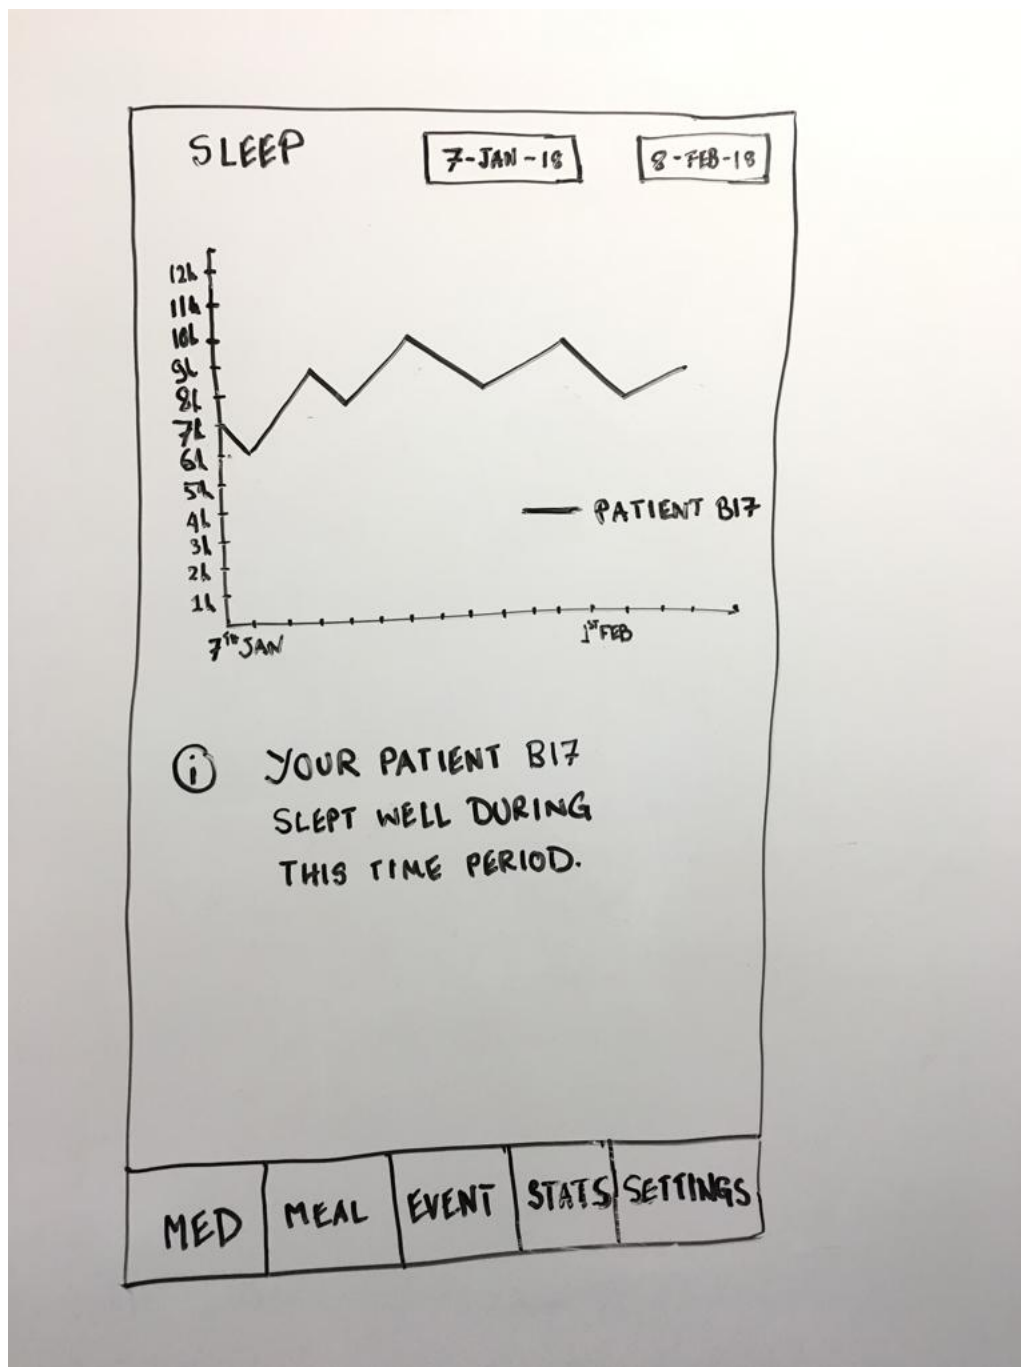 SLEEP
7-JAN-18
8-FEB-18
12h
11h
10h
9h
8h
7h
6h
5h
4h
3h
2h
1h
PATIENT B17
7TH JAN
1ST FEB
i YOUR PATIENT B17
SLEPT WELL DURING
THIS TIME PERIOD.
MED
MEAL
EVENT
STATS
SETTINGS